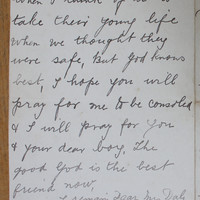 when I think
take their young life
when we thought they
were safe, But God knows
best, I hope you will
pray for me to be consoled
& I will pray for you
& your dear boy. The
good God is the best
friend now,
I remain Dear Mrs Daly